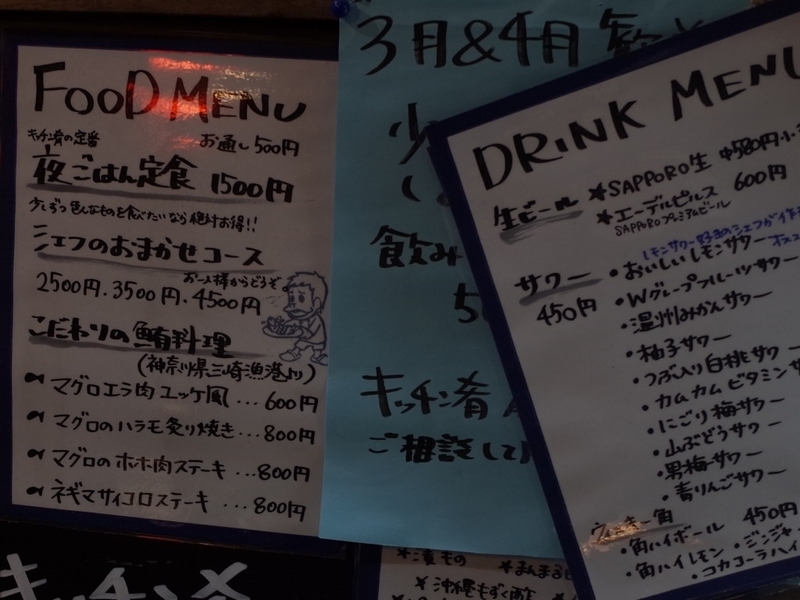 FOOD MENU
キッチン肴の定番
お通し500円
夜ごはん定食 1500円
少しずつ色んなものを食べたいなら絶対お得!!
シェフのおまかせコース
お一人様からどうぞ。
2500円.3500円.4500円
こだわりの鮪料理
(神奈川県三崎漁港より)
マグロエラ肉ユッケ風…600円
マグロのハラモ炙り焼き…800円
マグロのホホ肉ステーキ…800円
ネギマサイコロステーキ…800円
3月&4月
少
飲み
キッチン肴
ご相談して
DRINK MENU
生ビール ★SAPPORO生 中580円
★エーデルピルス 600円
SAPPOROプレミアムビール
レモンサワー好きのシェフが
サワー ・おいしいレモンサワー
450円 ・Wグレープフルーツサワー
・温州みかんサワー
・柚子サワー
・つぶ入り白桃サワー
・カムカムビタミン
・にごり梅サワー
・山ぶどうサワー
・男梅サワー
・青りんごサワー
ウィスキー角
・角ハイボール 450円
・角ハイレモン・ジンジャ
・コカコーラハイ
★漬もの
★沖縄もずく
キッチン